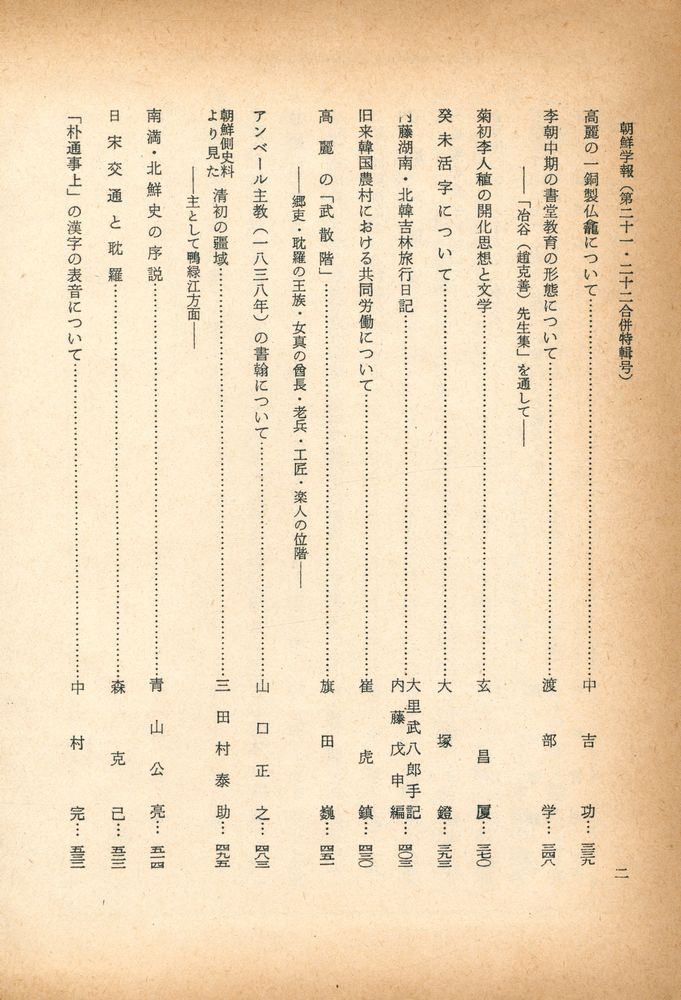 朝鮮学報（第二十一・二十二合併特輯号）
二
高麗の一銅製仏龕について…中吉功…三三九
李朝中期の書堂教育の形態について…渡部学…三四八
――「冶谷（趙克善）先生集」を通して――
菊初李人稙の開化思想と文学…玄昌厦…三七〇
癸未活字について…大塚鐙…三九三
内藤湖南・北韓吉林旅行日記…大里武八郎手記
内藤戊申編…四〇三
旧来韓国農村における共同労働について…崔虎鎮…四三〇
高麗の「武散階」…旗田巍…四五一
――郷吏・耽羅の王族・女真の酋長・老兵・工匠・楽人の位階――
アンベール主教（一八三八年）の書翰について…山口正之…四八三
朝鮮側史料より見た 清初の疆域…三田村泰助…四九五
――主として鴨緑江方面――
南満・北鮮史の序説…青山公亮…五一四
日宋交通と耽羅…森克己…五二二
「朴通事上」の漢字の表音について…中村完…五三三